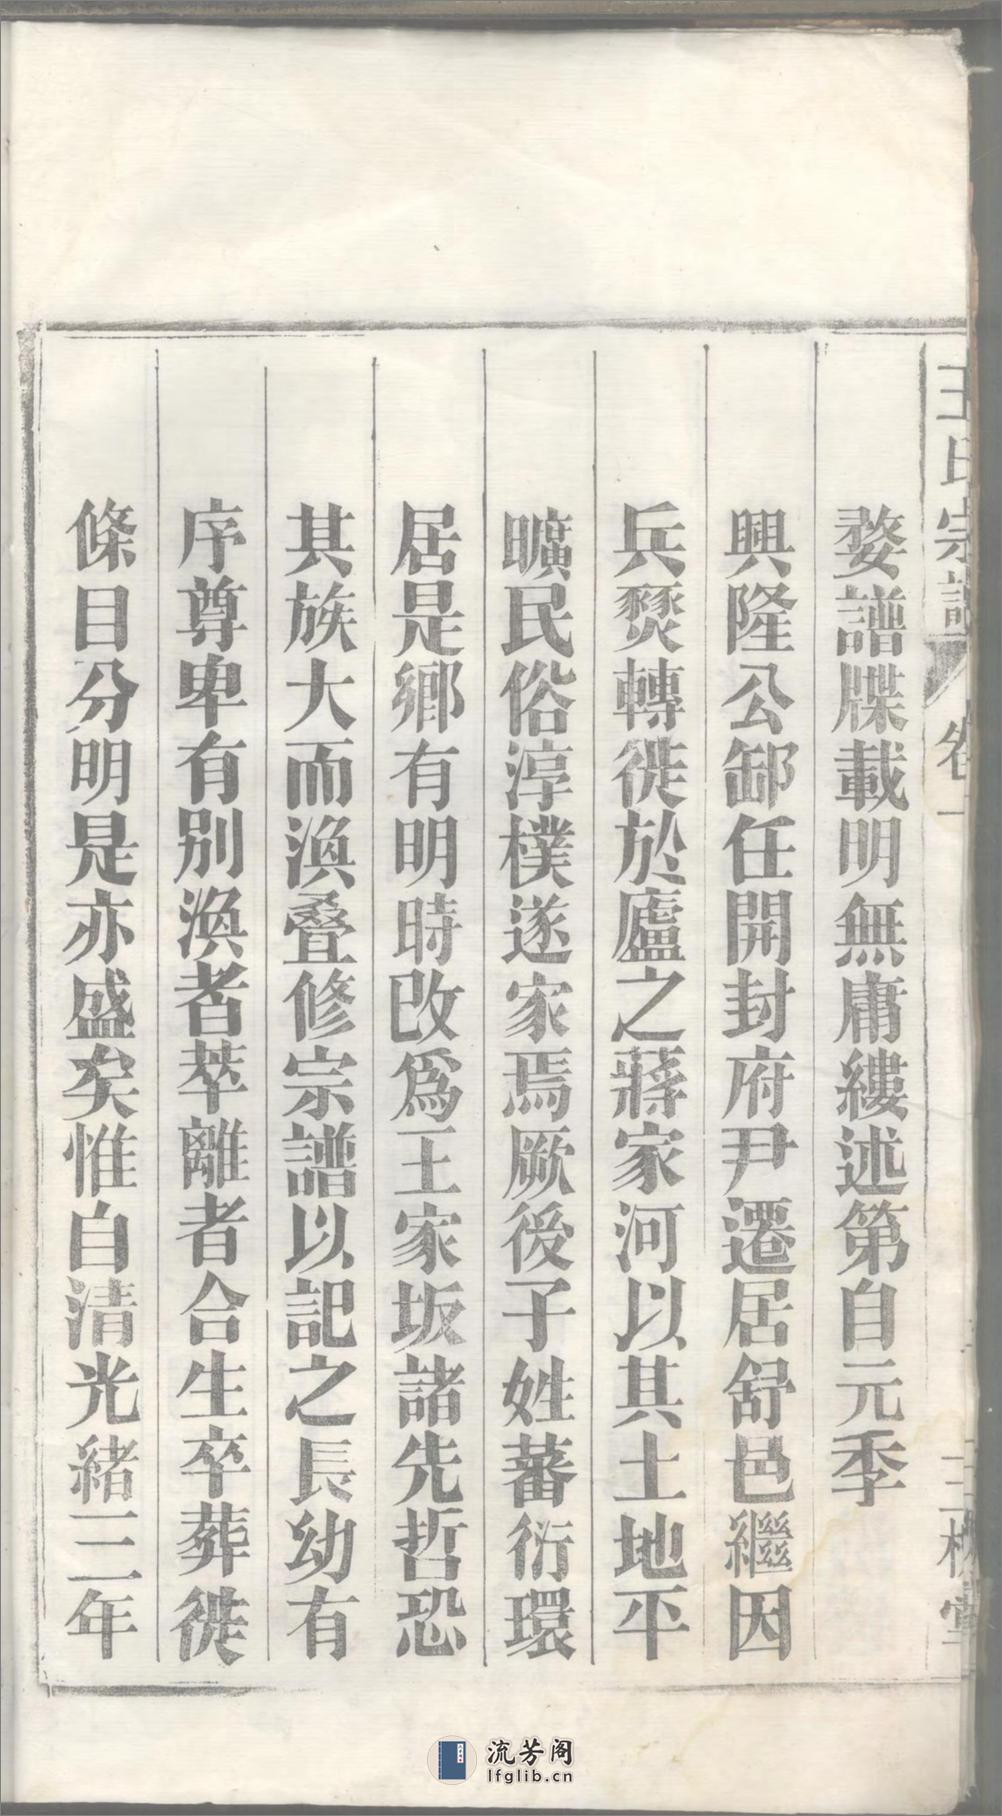 王氏宗譜 卷一 三槐堂
婺譜牒載明無庸縷述第自元季
興隆公卸任開封府尹遷居舒邑繼因
兵燹轉徙於廬之蔣家河以其土地平
曠民俗淳樸遂家焉厥後子姓蕃衍環
居是鄉有明時改爲王家坂諸先哲恐
其族大而渙叠修宗譜以記之長幼有
序尊卑有别渙者萃離者合生卒葬徙
條目分明是亦盛矣惟自清光緒三年
流芳阁
lfglib.cn